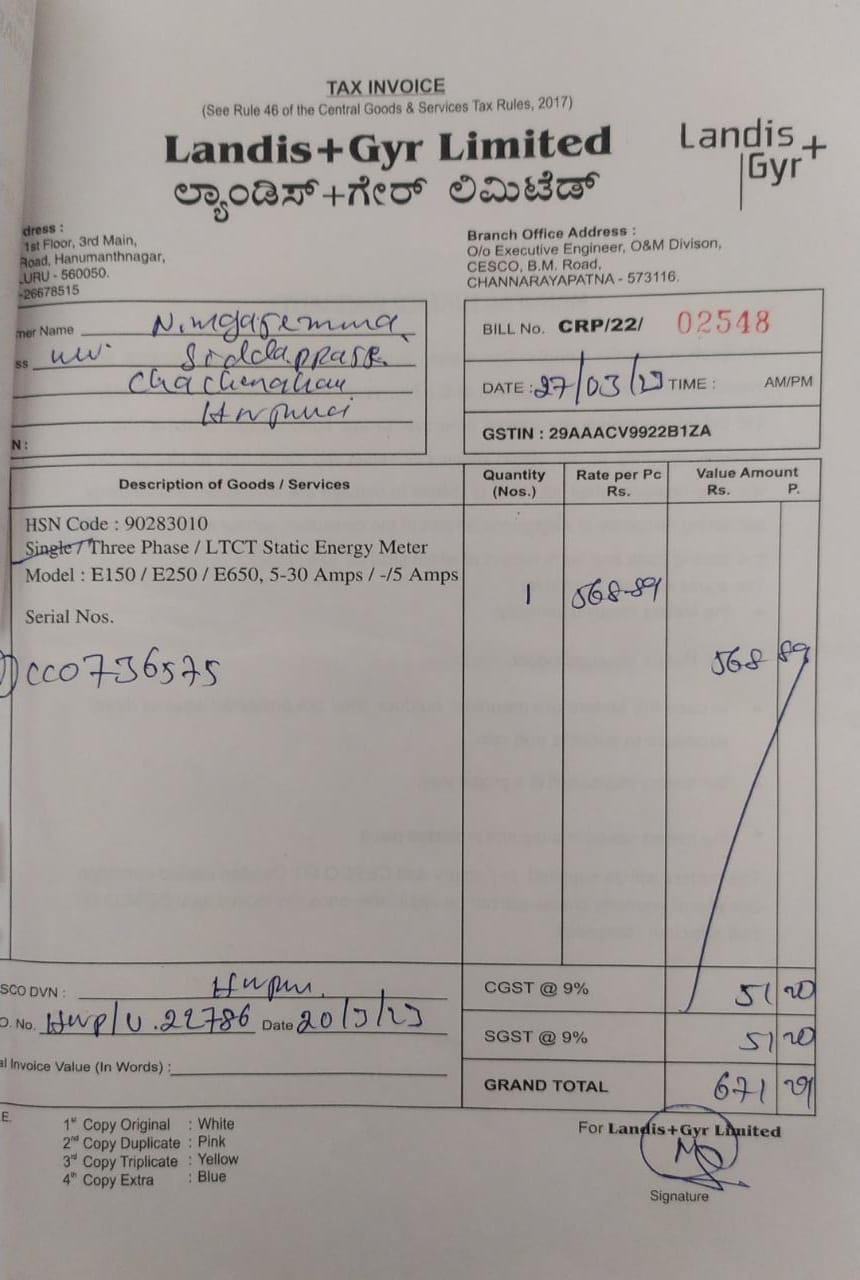 TAX INVOICE
(See Rule 46 of the Central Goods & Services Tax Rules, 2017)
Landis+Gyr Limited
ಲ್ಯಾಂಡಿಸ್+ಗೇರ್ ಲಿಮಿಟೆಡ್
Landis+
Gyr
dress :
1st Floor, 3rd Main,
Road, Hanumanthnagar,
LURU - 560050.
-26678515
Branch Office Address :
O/o Executive Engineer, O&M Divison,
CESCO, B.M. Road,
CHANNARAYAPATNA - 573116.
mer Name
ss
N :
BILL No. CRP/22/ 02548
DATE : 27/03/23 TIME : AM/PM
GSTIN : 29AAACV9922B1ZA
Description of Goods / Services Quantity (Nos.) Rate per Pc Rs. Value Amount Rs. P.
HSN Code : 90283010
Single / Three Phase / LTCT Static Energy Meter
Model : E150 / E250 / E650, 5-30 Amps / -/5 Amps
1 568-89
Serial Nos.
568 89
CC0736575
SCO DVN :
O. No. HNP/U.22786 Date 20/3/23
al Invoice Value (In Words) :
CGST @ 9% 51 20
SGST @ 9% 51 20
GRAND TOTAL 671 29
E.
1st Copy Original : White
2nd Copy Duplicate : Pink
3rd Copy Triplicate : Yellow
4th Copy Extra : Blue
For Landis+Gyr Limited
Signature